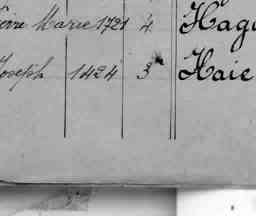 Marie 1721 4 Hag
Joseph 1424 3 Haie